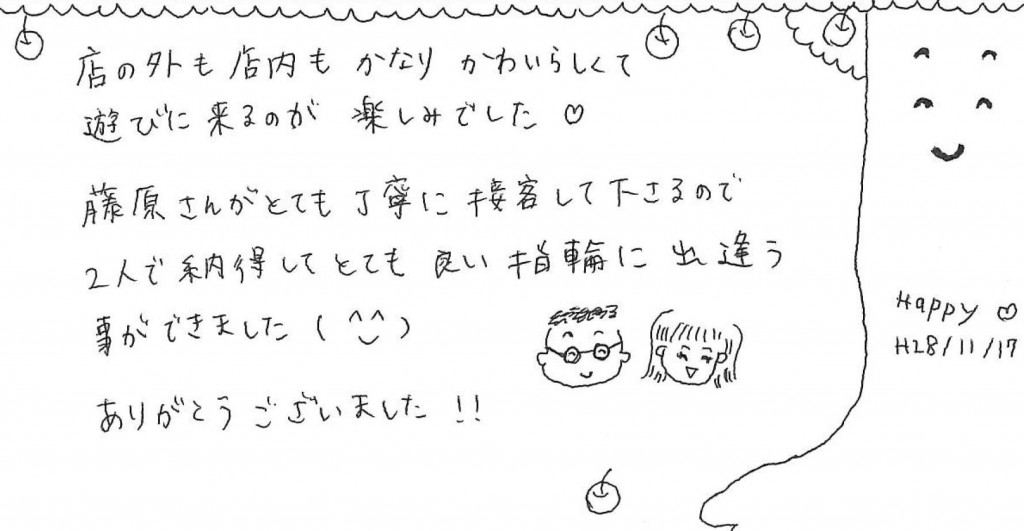 店の外も店内も かなり かわいらしくて
遊びに来るのが 楽しみでした♡
藤原さんがとても丁寧に接客して下さるので
2人で納得してとても良い指輪に出逢う
事ができました(^‿^)
ありがとうございました!!
Happy♡
H28/11/17